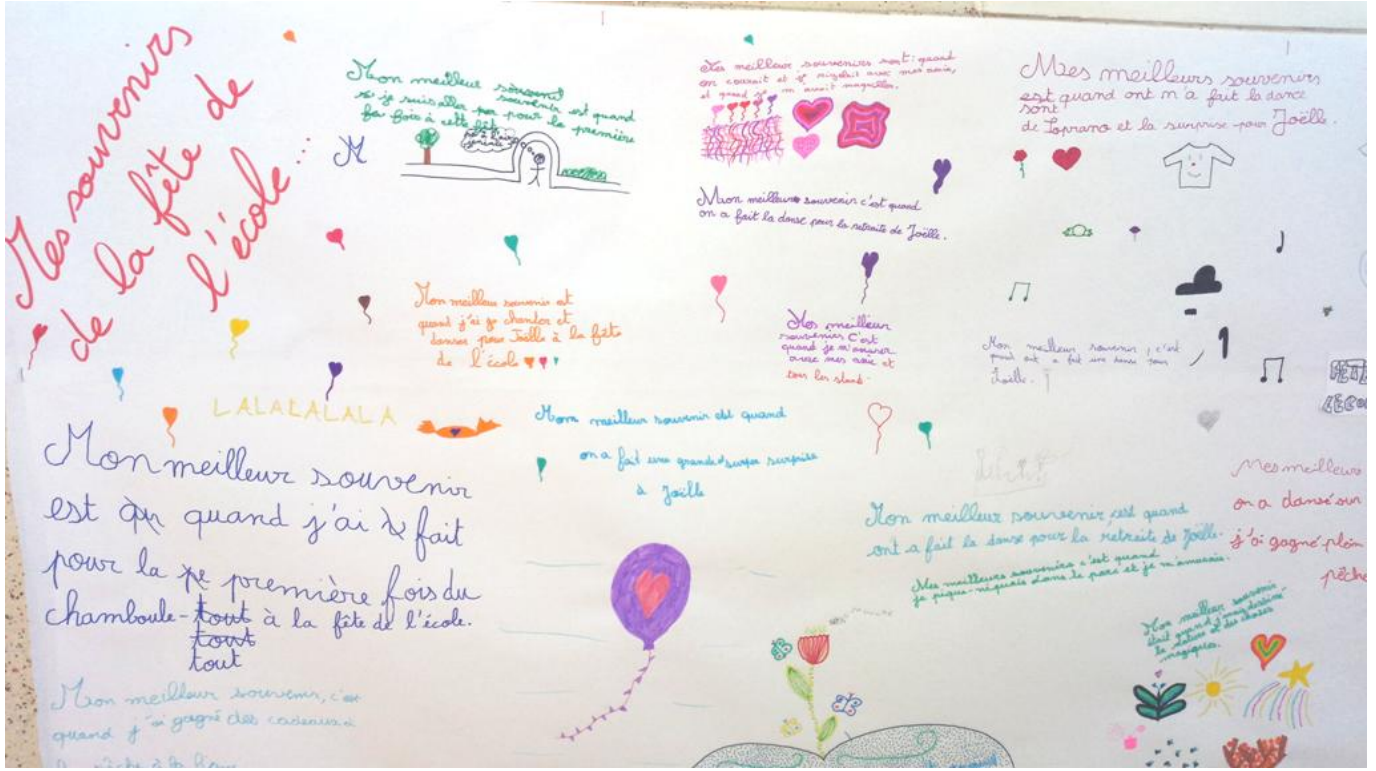 Mes souvenirs
de la fête de
l'école...
Mon meilleur souvenir
souvenir est quand
je suis aller par pour la première
foi fois à cette fête
M
Les meilleur souvenirs sont : quand
on courait et je rigolait avec mes amis,
et quand je m'avait maquiller.
Mes meilleurs souvenirs
est quand ont m'a fait la dance
sont
de Soprano et la surprise pour Joëlle.
Mon meilleur souvenir c'est quand
on a fait la danse pour la retraite de Joëlle.
Mon meilleur souvenir est
quand j'ai chanter et
danser pour Joëlle à la fête
de l'école
Mes meilleur
souvenirs C'est
quand je m'amuser
avec mes amie et
tous les stand.
Mon meilleur souvenir, c'est
quand ont a fait une danse pour
Joëlle.
LALALALALA
Mon meilleur souvenir
est qu quand j'ai fait
pour la pe première fois du
chamboule-tout à la fête de l'école.
tout
tout
Mom meilleur souvenir est quand
on a fait une grande surprise
à Joëlle
Mon meilleur souvenir, c'est quand
ont a fait la danse pour la retraite de Joëlle.
Mes meilleurs souvenirs c'est quand
je pique-niquais dans le parc et je m'amusais.
Mes meilleurs
on a dansé sur
j'ai gagné plein
pêche
Mon meilleur souvenir
était quand
et des choses
magiques.
Mon meilleur souvenir, c'est
quand j'ai gagné des cadeaux à
la pêche à la ligne